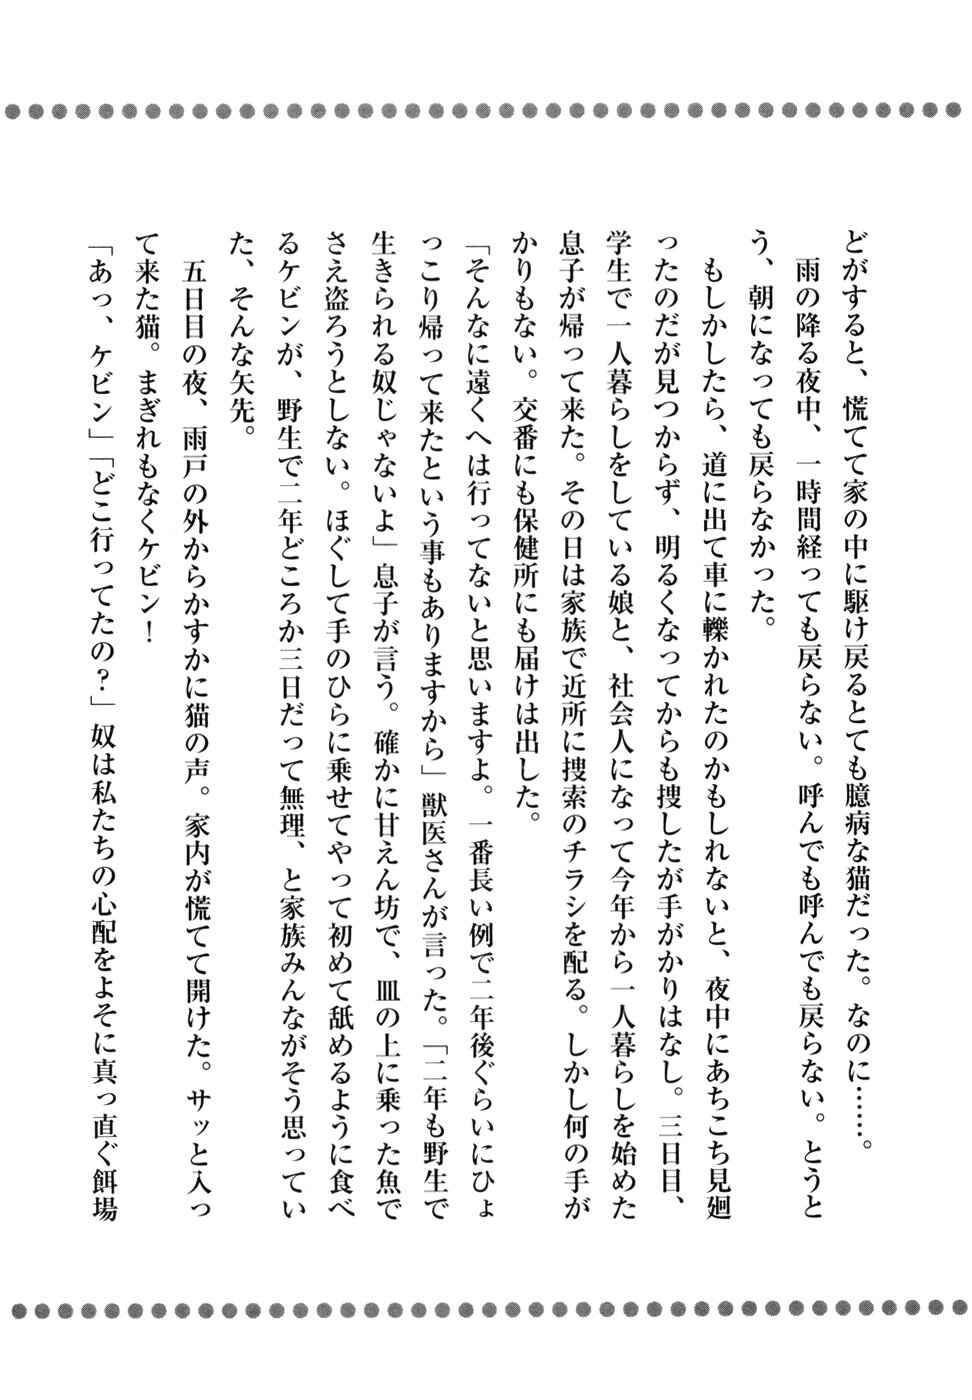 どがすると、慌てて家の中に駆け戻るとても臆病な猫だった。なのに……。
雨の降る夜中、一時間経っても戻らない。呼んでも呼んでも戻らない。とうと
う、朝になっても戻らなかった。
もしかしたら、道に出て車に轢かれたのかもしれないと、夜中にあちこち見廻
ったのだが見つからず、明るくなってからも捜したが手がかりはなし。三日目、
学生で一人暮らしをしている娘と、社会人になって今年から一人暮らしを始めた
息子が帰って来た。その日は家族で近所に捜索のチラシを配る。しかし何の手が
かりもない。交番にも保健所にも届けは出した。
「そんなに遠くへは行ってないと思いますよ。一番長い例で二年後ぐらいにひょ
っこり帰って来たという事もありますから」獣医さんが言った。「二年も野生で
生きられる奴じゃないよ」息子が言う。確かに甘えん坊で、皿の上に乗った魚で
さえ盗ろうとしない。ほぐして手のひらに乗せてやって初めて舐めるように食べ
るケビンが、野生で二年どころか三日だって無理、と家族みんながそう思ってい
た、そんな矢先。
五日目の夜、雨戸の外からかすかに猫の声。家内が慌てて開けた。サッと入っ
て来た猫。まぎれもなくケビン！
「あっ、ケビン」「どこ行ってたの？」奴は私たちの心配をよそに真っ直ぐ餌場